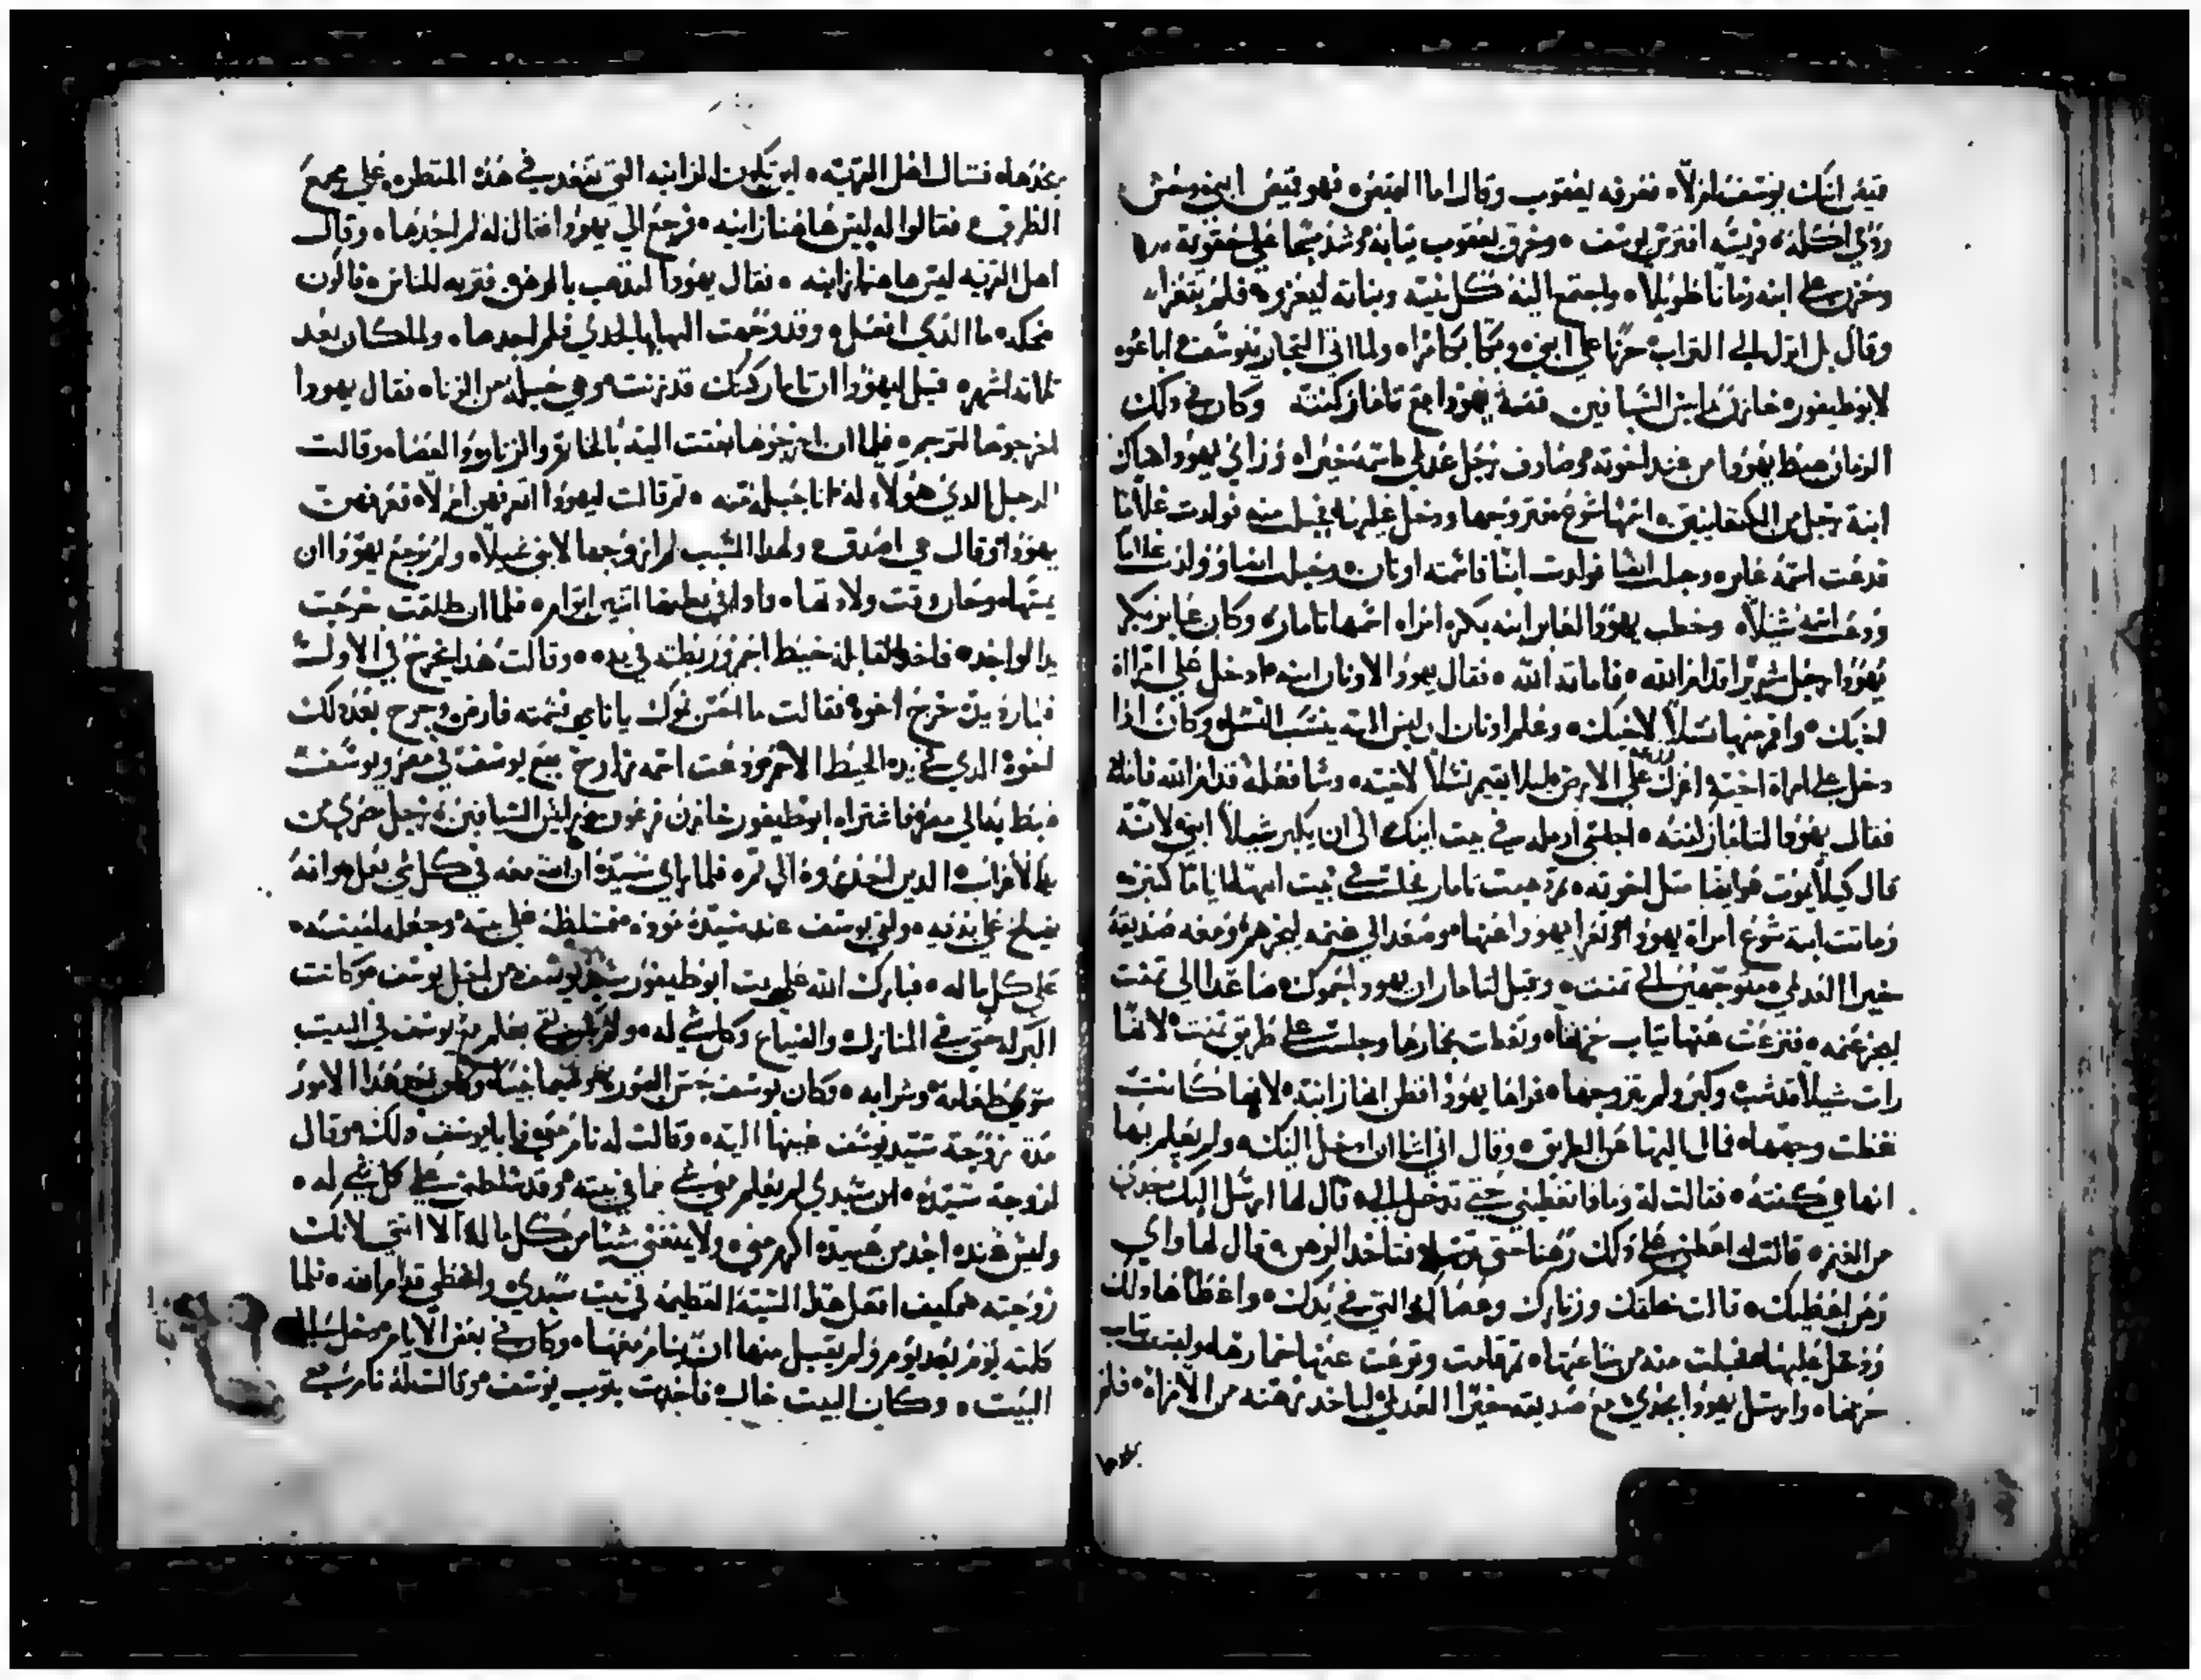 قميص ابنك يوسف ام لا ۰ فعرفه يعقوب وقال اما القميص ۰ فهو قميص ابني وحش
ردي اكله ۰ فريسه افترس يوسف ۰ وخرق يعقوب ثيابه وشد مسحا على حقويه
وحزن على ابنه زمانا طويلا ۰ واجتمع اليه كل بنيه وبناته ليعزوه ۰ فلم يتعزا
وقال بل انزل الى التراب حزنا على ابني ۰ وبكا بكا مرا ۰ ولما اتى التجار بيوسف اباعوه
لابوطيفور خازن رييس السيافين قصة يهودا مع تامار كنته وكان في ذلك
الزمان هبط يهودا من عند اخوته وصادف رجل عدلي اسمه حيرا ۰ وراي يهودا هناك
ابنة رجل من الكنعانيين ۰ اسمها شوع فتزوجها ودخل عليها فحبلت منه فولدت غلاما
فدعت اسمه عاير ۰ وحبلت ايضا فولدت ابنا فاسمته اونان ۰ وحبلت ايضا وولدت غلاما
ودعت اسمه شيلا ۰ وخطب يهودا لعاير ابنه بكره امراه اسمها تامار ۰ وكان عاير بكر
يهودا رجل شرير قدام الله ۰ فاماته الله ۰ فقال يهودا لاونان ابنه ادخل على امراة
اخيك ۰ واقم منها نسلا لاخيك ۰ وعلم اونان ان ليس اليه ينسب النسل وكان اذا
دخل على امراة اخيه افرك زرعه على الارض ليلا يقيم نسلا لاخيه ۰ وسا فعله قدام الله فاماته
فقال يهودا لتامار كنته ۰ اجلسي ارمله في بيت ابيك الى ان يكبر شيلا ابني لانه
قال كيلا يموت هو ايضا مثل اخوته ۰ فذهبت تامار فجلست في بيت ابيها اياما كثيره
وماتت ابنة شوع امراة يهودا وتعزا يهودا عنها ۰ وصعد الي غنمه ليجزهم ومعه صديقه
حيرا العدلي متوجهين الى تمنت ۰ وقيل لتامار ان يهودا حموك صاعدا الي تمنت
ليجز غنمه ۰ فنزعت عنها ثياب حزنها ۰ وتغطت بخمارها وجلست على طريق تمنت لانها
رات شيلا قد شب وكبر ولم يتزوجها ۰ فراها يهودا فظن انها زانية ۰ لانها كانت
غطت وجهها ۰ فمال اليها عن الطريق ۰ وقال اني اشا ان ادخل اليك ۰ ولم يعلم بها
انها هي كنته ۰ فقالت له وماذا تعطيني حتى تدخل الي ۰ قال لها ارسل اليك بجدي
من الغنم ۰ قالت له اعطني على ذلك رهنا حتى ترسله فتاخد الرهن ۰ قال لها واي
رهن اعطيك ۰ قالت خاتمك وزنارك وعصاك التي في يدك ۰ واعطاها ذلك
ودخل عليها فحبلت منه من ساعتها ۰ ثم قامت ونزعت عنها خمارها ولبست ثياب
حزنها ۰ وارسل يهودا بجدي مع صديقه حيرا العدلي لياخد رهنه من الامراه ۰ فلم
يجدها
يجدها ۰ فسال اهل القريه ۰ اين تكون الزانيه التي تقعد في هذه المنطره على مجمع
الطرق ۰ فقالوا له ليس هاهنا زانيه ۰ فرجع الي يهودا فقال له لم اجدها ۰ وقال
اهل القريه ليس هاهنا زانيه ۰ فقال يهودا لتذهب بالرهن فتريه للناس ۰ فاكون
ضحكه ۰ ما الذي افعل ۰ وقد رحمت اليها بالجدي فلم اجدها ۰ ولما كان بعد
ثلاثه اشهر ۰ قيل ليهودا ان تامار كنتك قد زنت وهي حبله من الزنا ۰ فقال يهودا
اخرجوها لترجم ۰ فلما ان اخرجوها بعتت اليه بالخاتم والزنار والعصاه وقالت
الرجل الدي هولاء له انا حبله منه ۰ ثم قالت ليهودا اتعرفهن ام لا ۰ فعرفهن
يهودا وقال هي اصدق ۰ ولهذا السبب لم ازوجها لابني شيلا ۰ ولم يرجع يهودا ان
يمسها ۰ وحان وقت ولادتها ۰ واذا في بطنها اثنين اتوام ۰ فلما ان طلقت خرجت
يد الواحد ۰ فاخد القابله خيط احمر وربطته في يده ۰ وقالت هذا يخرج في الاول
فبارد يده خرج اخوه فقالت ما احسن من يا نامي فسمته فارض وخرج بعد ذلك
اخوه الدي في يده الخيط الاحمر ودعت اسمه زارح بيع يوسف في مصر ويوسف
هبط به الي مصر فاشتراه ابوطيفور خازن فرعون رييس السيافين ۰ رجل مصري من
يد الاعراب الدين اخدوه الي ثم ۰ فلما راي سيده ان الله معه في كل شي يعمل هو انه
يصلح على يديه ۰ ولقي يوسف عند سيده موده ۰ فسلطه على بيته وجعله امينه ۰
على كل ماله ۰ فبارك الله على بيت ابوطيفور من اجل يوسف ۰ وكانت
البركه حتى في المنازل والضياع وكل شي له ۰ ولم يكن يعلم من يوسف في البيت
سوى طعامه وشرابه ۰ وكان يوسف حسن الصوره وكان بعد هذا الامور
مدة زوجة سيد يوسف عينها اليه ۰ وقالت له نام معي فابا يوسف ذلك وقال
لزوجة سيده ۰ ان سيدي لم يعلم مني شي مما في بيته ۰ وقد سلطني على كل شي له ۰
وليس عنده احد من عبيده اكرم مني ۰ ولا يمنعني شيا من كل ماله الا انتي لانك
زوجته ۰ فكيف افعل هذا السيه العظيمه في بيت سيدي واخطى قدام الله ۰ فلما
كلمته يوم بعد يوم ولم يقبل منها ان ينام معها ۰ وكان في بعض الايام دخل
البيت ۰ وكان البيت خال فاخدت بثوب يوسف وقالت له نام معي